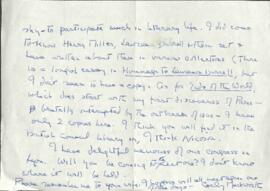 shy to participate much in literary life. I did come
to know Henry Miller, Lawrence Durrell & their set &
have written about them in various collections (There
is a longish essay in Homage to Lawrence Durrell, but
I don't seem to have a copy. So for Out of the World,
which does start with my first discoveries of Paris -
brutally interrupted by the outbreak of war - I have
only 2 copies here. I think you will find it in the
British Council library or I think Nicosia.
I have delightful memories of our congress in
. Will you be coming to ? I don't know
where it will be held.
Please remember me to your wife. I hope we will all meet again one